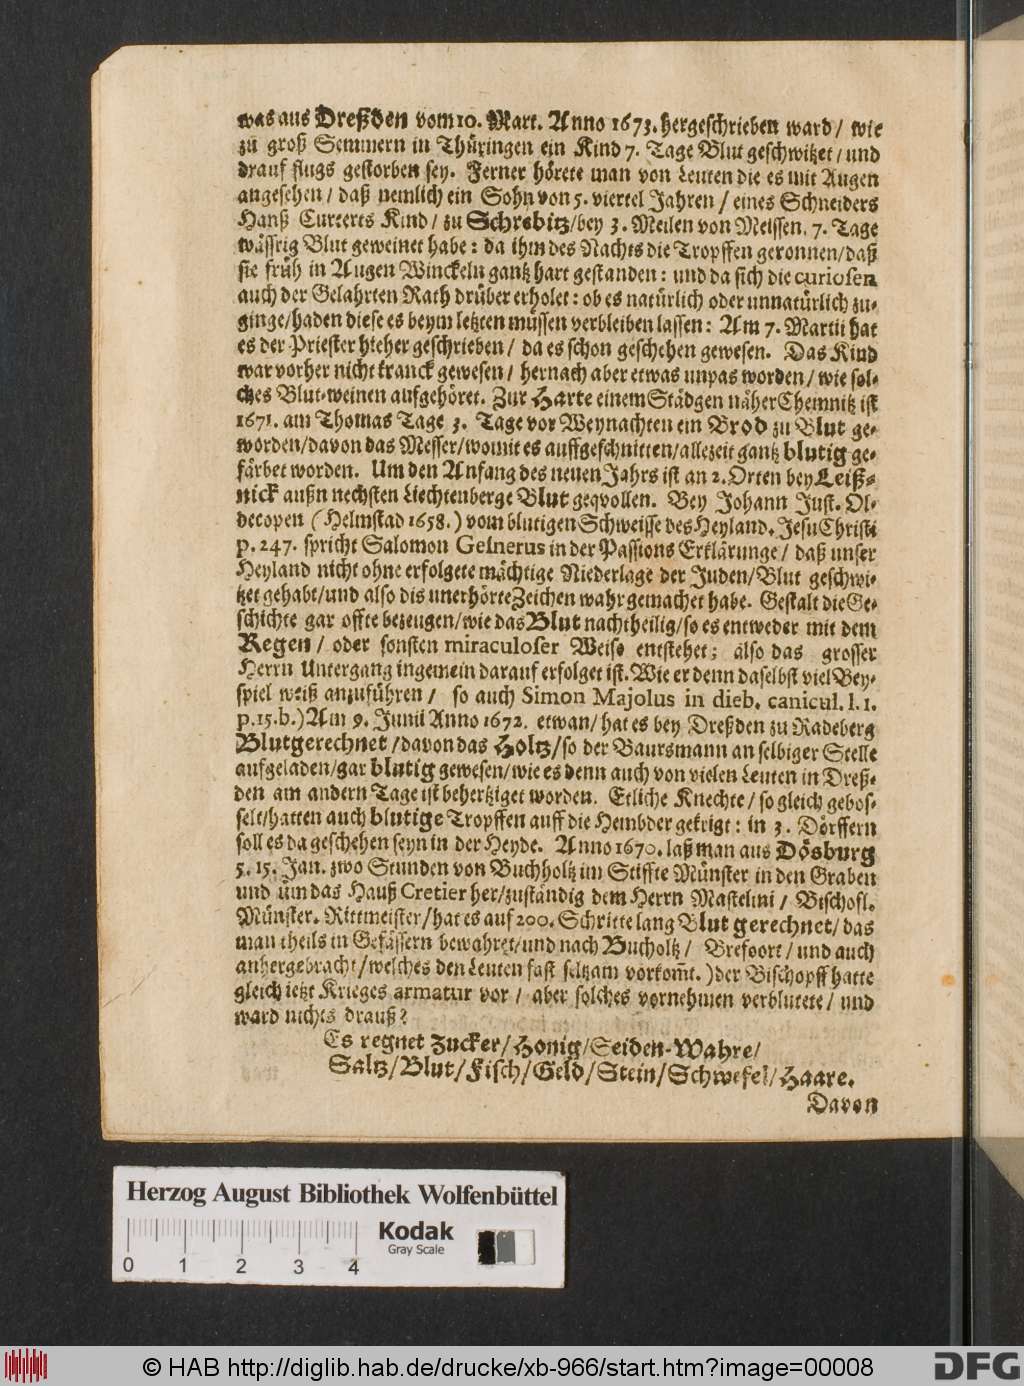 was aus Dreßden vom 10. Mart. Anno 1673. hergeschrieben ward/ wie
zu groß Semmern in Thüringen ein Kind 7. Tage Blut geschwitzet/ und
drauf flugs gestorben sey. Ferner hörete man von Leuten die es mit Augen
angesehen/ daß nemlich ein Sohn von 5. viertel Jahren/ eines Schneiders
Hanß Curterts Kind/ zu Schrebitz/ bey 3. Meilen von Meissen, 7. Tage
wässrig Blut geweinet habe: da ihm des Nachts die Tropffen geronnen/ daß
sie früh in Augen Winckeln gantz hart gestanden: und da sich die curiosen
auch der Gelahrten Rath drüber erholet: ob es natürlich oder unnatürlich zu-
ginge/ haben diese es beym letzten müssen verbleiben lassen: Am 7. Martii hat
es der Priester hieher geschrieben/ da es schon geschehen gewesen. Das Kind
war vorher nicht kranck gewesen/ hernach aber etwas unpas worden/ wie sol-
ches Blut-weinen aufgehöret. Zur Harte einem Städgen näher Chemnitz ist
1671. am Thomas Tage 3. Tage vor Weynachten ein Brod zu Blut ge-
worden/ davon das Messer/ womit es auffgeschnitten/ allezeit gantz blutig ge-
färbet worden. Um den Anfang des neuen Jahrs ist an 2. Orten bey Leiß-
nick außn nechsten Liechtenberge Blut geqvollen. Bey Johann Just. Ol-
decopen (Helmstad 1658.) vom blutigen Schweisse des Heyland. Jesu Christi
p. 247. spricht Salomon Gesnerus in der Passions Erklärunge/ daß unser
Heyland nicht ohne erfolgete mächtige Niederlage der Juden/ Blut geschwi-
tzet gehabt/ und also dis unerhörte Zeichen wahr gemachet habe. Gestalt die Ge-
schichte gar offte bezeugen/ wie das Blut nachtheilig/ so es entweder mit dem
Regen/ oder sonsten miraculoser Weise entstehet; also das grosser
Herrn Untergang ingemein darauf erfolget ist. Wie er denn daselbst viel Bey-
spiel weiß anzuführen/ so auch Simon Majolus in dieb. canicul. l. 1.
p. 15. b.) Am 9. Junii Anno 1672. etwan/ hat es bey Dreßden zu Radeberg
Blut gerechnet/ davon das Holtz/ so der Baursmann an selbiger Stelle
aufgeladen/ gar blutig gewesen/ wie es denn auch von vielen Leuten in Dreß-
den am andern Tage ist behertziget worden. Etliche Knechte/ so gleich gebos-
selt/ hatten auch blutige Tropffen auff die Hembder gekrigt: in 3. Dörffern
soll es da geschehen seyn in der Heyde. Anno 1670. laß man aus Dösburg
5. 15. Jan. zwo Stunden von Buchholtz im Stiffte Münster in den Graben
und üm das Hauß Cretier her/ zuständig dem Herrn Mastelini/ Bischofl.
Münster. Rittmeister/ hat es auf 200. Schritte lang Blut gerechnet/ das
man theils in Gefässern bewahret/ und nach Bucholtz/ Brefoort/ und auch
anhergebracht/ welches den Leuten fast seltzam vorkom̃t.) der Bischopff hatte
gleich ietzt Krieges armatur vor/ aber solches vornehmen verblutete/ und
ward nichts drauß?
Es regnet Zucker/ Honig/ Seiden-Wahre/
Saltz/ Blut/ Fisch/ Geld/ Stein/ Schwefel/ Haare.
Davon
Herzog August Bibliothek Wolfenbüttel
Kodak
Gray Scale
0 1 2 3 4
© HAB http://diglib.hab.de/drucke/xb-966/start.htm?image=00008
DFG